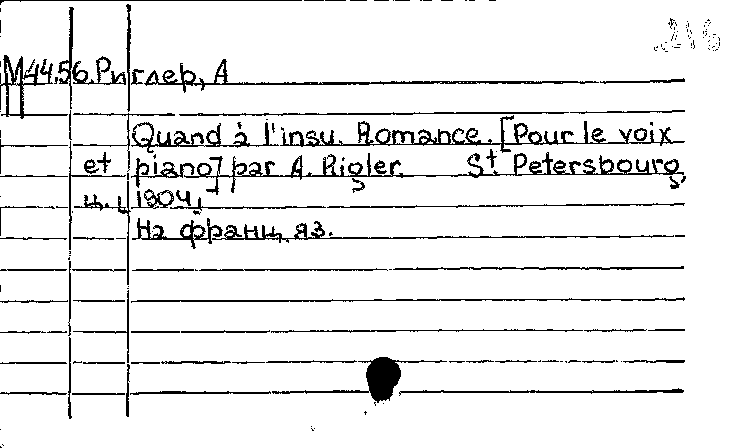 216
М44.56. Риглер, А
Quand à l'insu. Romance. [Pour le voix
et piano] par A. Rigler. St. Petersbourg,
ц. ц. 1904,
На франц. яз.